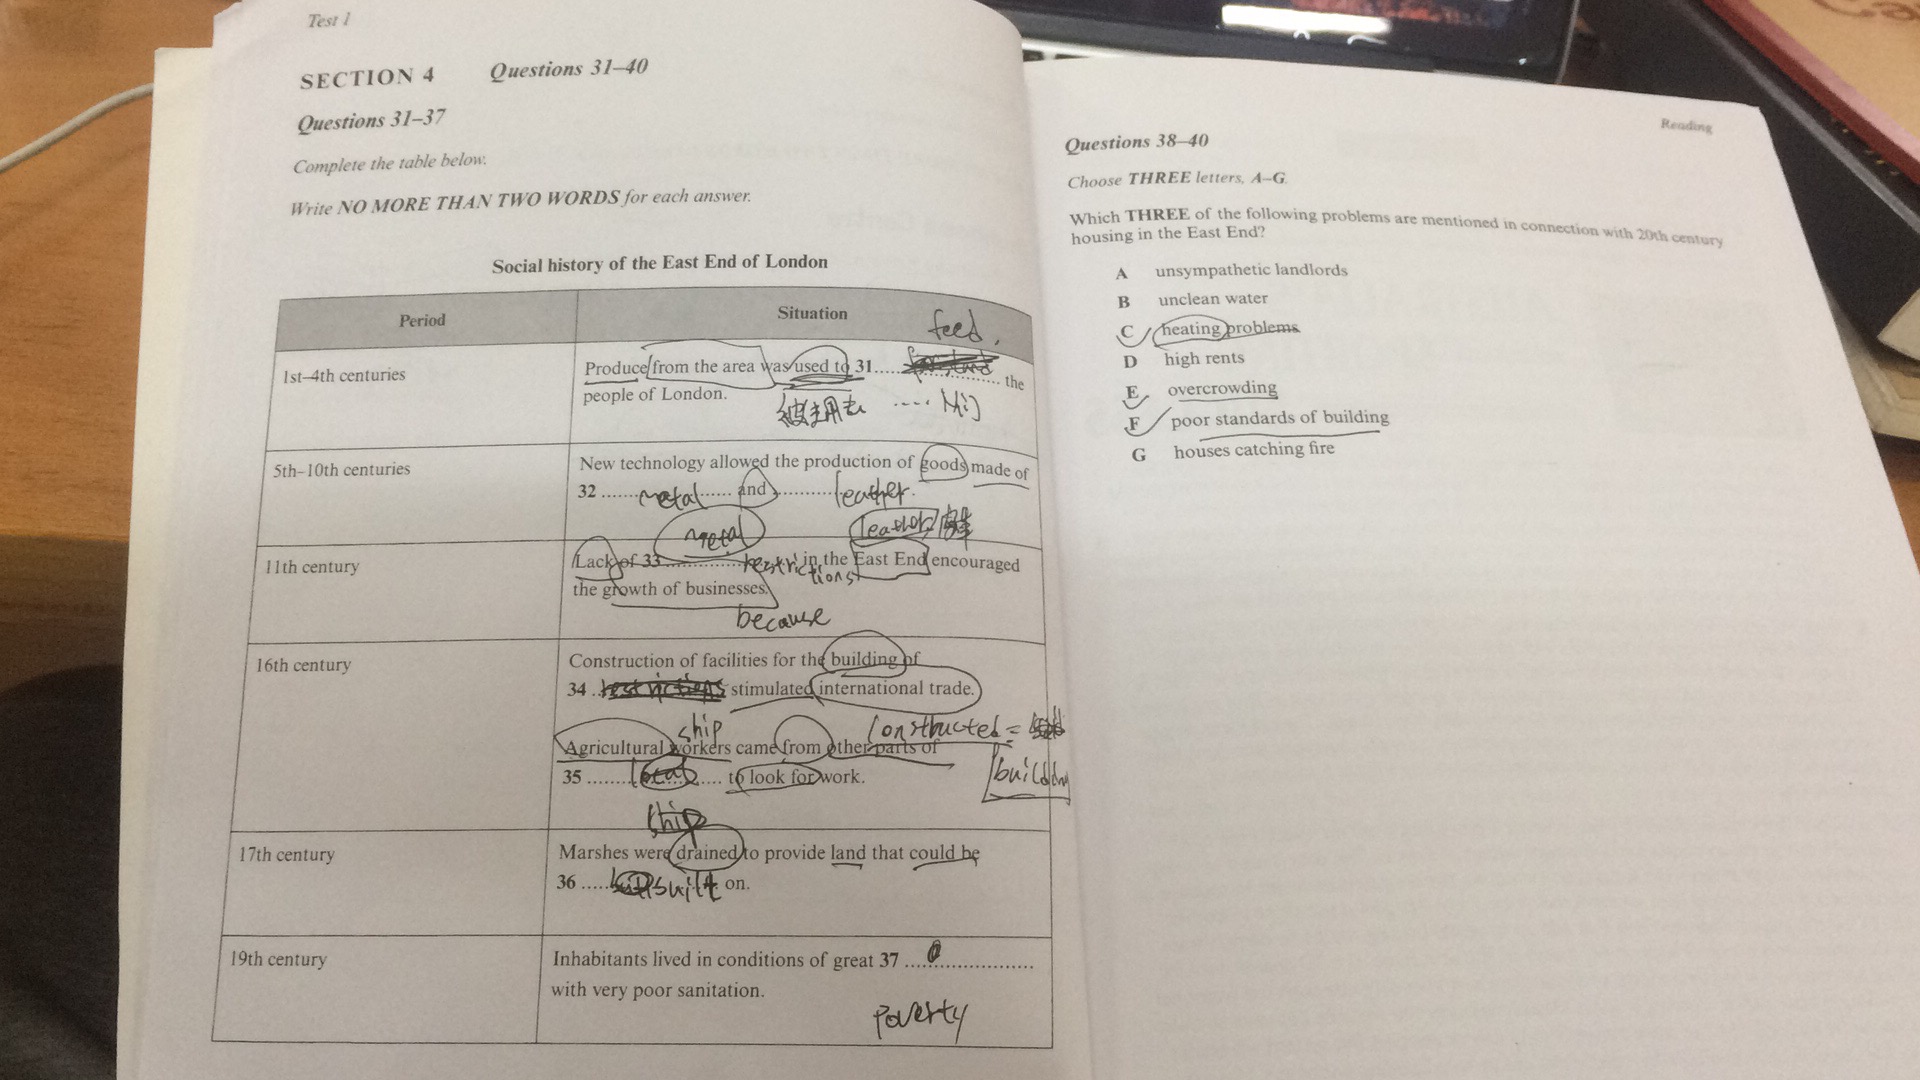 Test 1
SECTION 4 Questions 31–40
Questions 31–37
Complete the table below.
Write NO MORE THAN TWO WORDS for each answer.
Social history of the East End of London
Period Situation
feed.
1st–4th centuries Produce from the area was used to 31 .......... the
people of London.
5th–10th centuries New technology allowed the production of goods made of
32 ...... metal ...... and .......... leather.
metal leather
11th century Lack of 33 .......... restrictions in the East End encouraged
the growth of businesses.
because
16th century Construction of facilities for the building of
34 .. restrictions stimulated international trade.
ship constructed =
Agricultural workers came from other parts of
35 ........ local .... to look for work.
building
ship
17th century Marshes were drained to provide land that could be
36 ..... built on.
19th century Inhabitants lived in conditions of great 37 ....................
with very poor sanitation.
poverty
Reading
Questions 38–40
Choose THREE letters, A–G.
Which THREE of the following problems are mentioned in connection with 20th century
housing in the East End?
A unsympathetic landlords
B unclean water
C heating problems
D high rents
E overcrowding
F poor standards of building
G houses catching fire